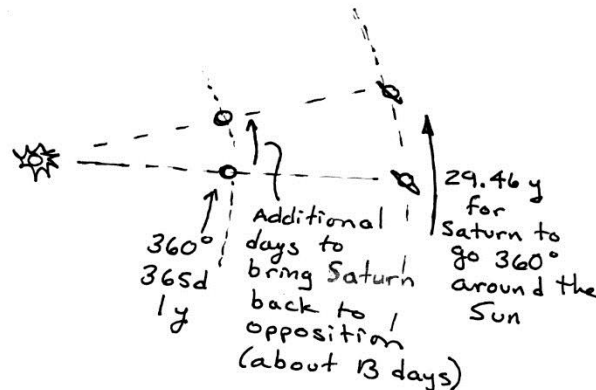 360°
365d
1y
Additional
days to
bring Saturn
back to
opposition
(about 13 days)
29.46 y
for
Saturn to
go 360°
around the
Sun